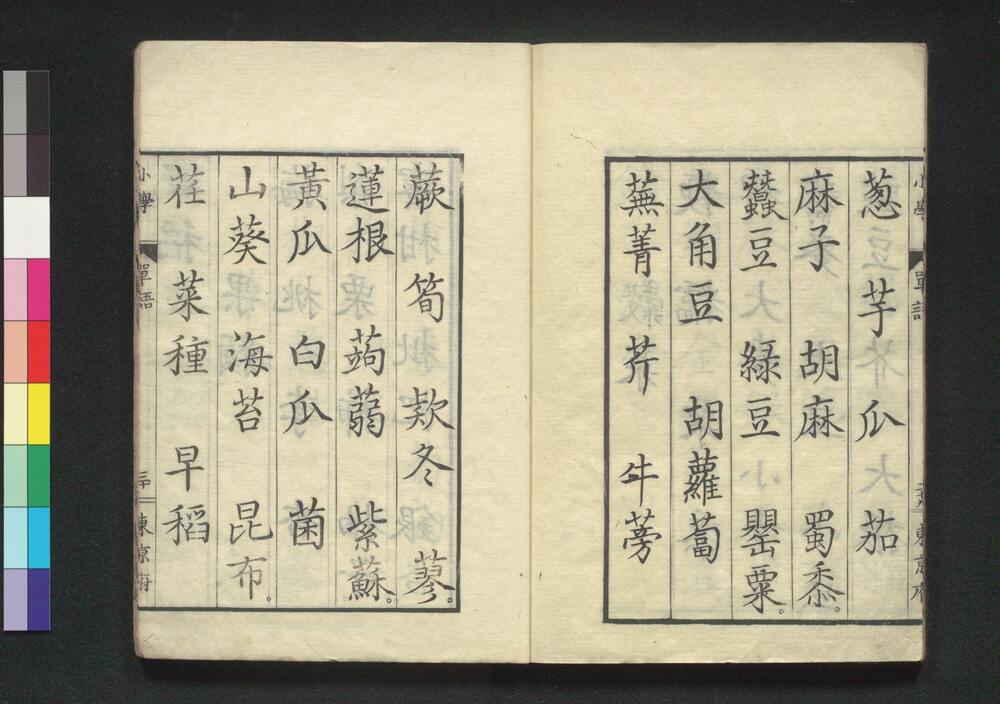 小學 單語 東京府
葱 芋 瓜 茄
麻子 胡麻 蜀黍。
蠶豆 綠豆 罌粟。
大角豆 胡蘿蔔
蕪菁 芥 牛蒡
蕨 筍 欵冬 蓼。
蓮根 蒟蒻 紫蘇。
黃瓜 白瓜 菌
山葵 海苔 昆布。
荏 菜種 早稻
小學 單語 二十一 東京府